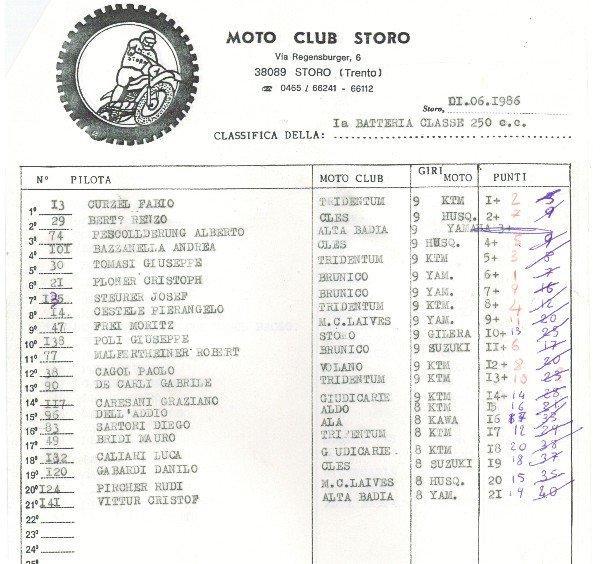 STORO
MOTO CLUB STORO
Via Regensburger, 6
38089 STORO (Trento)
☎ 0465 / 66241 - 66112
Storo, DI.06.1986
CLASSIFICA DELLA: Ia BATTERIA CLASSE 250 c.c.
N° PILOTA MOTO CLUB GIRI MOTO PUNTI
1° I3 CURZEL FABIO TRIDENTUM 9 KTM I+ 2
2° 29 BERT? RENZO CLES 9 HUSQ. 2+ 7 9
3° 74 PESCOLLDERUNG ALBERTO ALTA BADIA 9 YAMAHA 3+
4° IOI BAZZANELLA ANDREA CLES 9 HUSQ. 4+ 5 9
5° 30 TOMASI GIUSEPPE TRIDENTUM 9 KTM 5+ 3 8
6° 2I PLONER CRISTOPH BRUNICO 9 YAM. 6+ 1 7
7° STEURER JOSEF BRUNICO 9 YAM. 7+ 9 16
8° I4 CESTELE PIERANGELO TRIDENTUM 9 KTM. 8+ 4 12
9° 47 FREI MORITZ M.C.LAIVES 9 YAM. 9+ 11 20
10° I38 POLI GIUSEPPE STORO 9 GILERA IO+ 13
11° 77 MALFERTHEINER ROBERT BRUNICO 9 SUZUKI II+ 6 17
12° 38 CAGOL PAOLO VOLANO 9 KTM I2+ 8 20
13° 90 DE CARLI GABRILE TRIDENTUM 9 KTM I3+ 10
14° II7 CARESANI GRAZIANO GIUDICARIE 9 KTM I4+ 14
15° 96 DELL'ADDIO ALDO 8 KTM I5 16
16° 83 SARTORI DIEGO ALA 8 KAWA I6
17° 49 BRIDI MAURO 8 KTM I7 12
18° I32 CALIARI LUCA 8 KTM I8 20 38
19° I20 GABARDI DANILO CLES 8 SUZUKI I9 18 37
20° I24 PIRCHER RUDI M.C.LAIVES 8 HUSQ. 20 15 35
21° I4I VITTUR CRISTOF ALTA BADIA 8 YAM. 2I 19 40
22°
23°
24°
25°